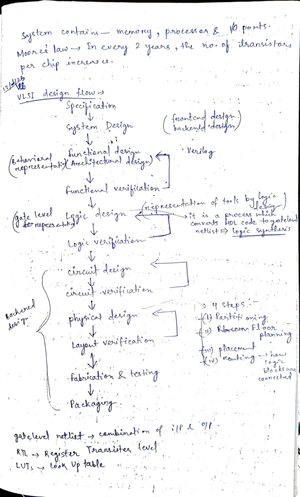 System contains — memory, processor & I/O ports.
Moore's law → In every 2 years, the no. of transistors
per chip increases.
VLSI design flow →
Specification
System Design
(frontend design)
(backend design)
Functional design
(Behavioral representation)
(Architectural design)
Verilog
Functional verification
(representation of tools by logic
gate level
representation
Logic design
→ it is a process which
converts HDL code to gatelevel
netlist → logic synthesis
Logic verification
circuit design
circuit verification
Backend
design
physical design
→ 4 steps :-
(i) Partitioning
(ii) Floor
planning
(iii) placement
(iv) routing → how
logic
blocks are
connected
Layout verification
Fabrication & testing
Packaging
gatelevel netlist → combination of i/p & o/p
RTL → Register Transistor level
LUTs → Look Up table